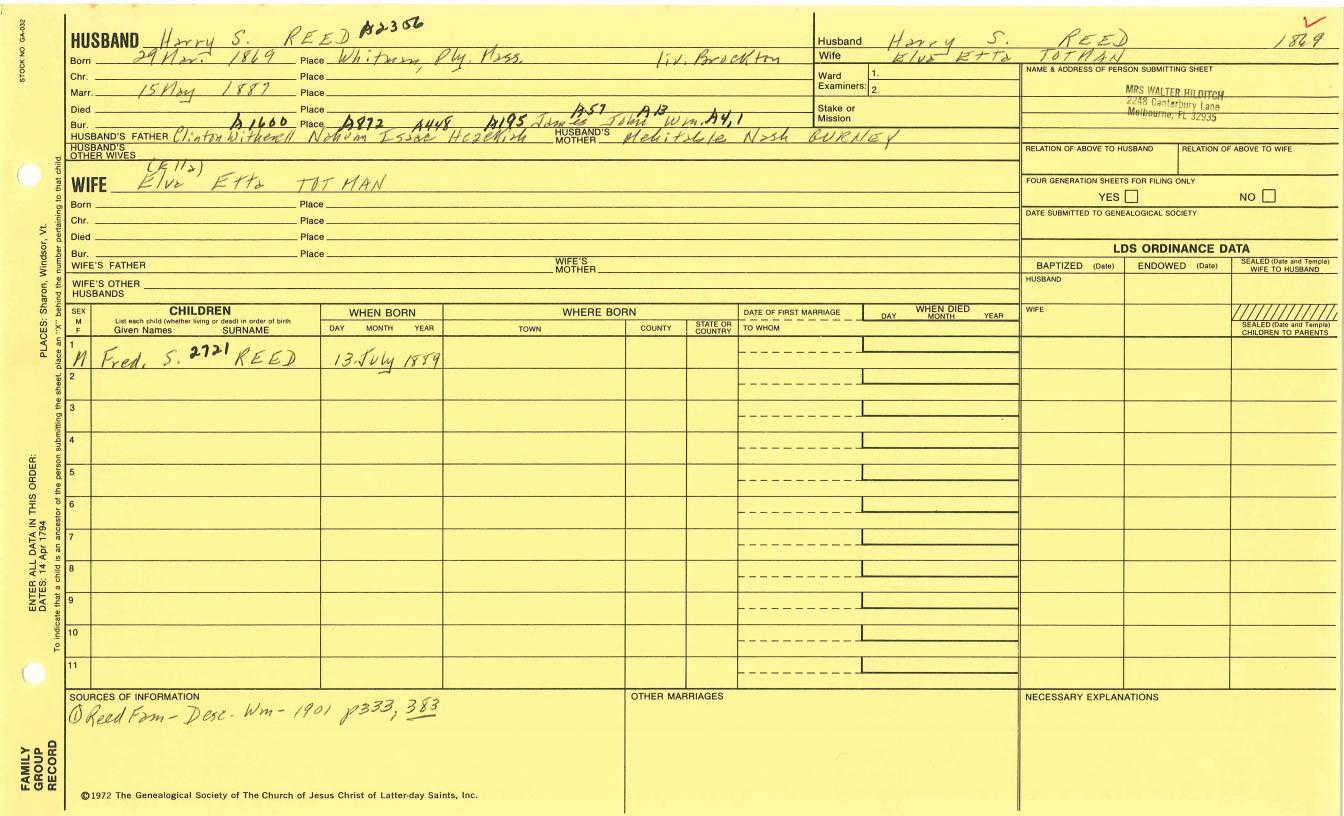 STOCK NO. GA-032
PLACES: Sharon, Windsor, Vt.
ENTER ALL DATA IN THIS ORDER:
DATES: 14 Apr 1794
To indicate that a child is an ancestor of the person submitting the sheet, place an "X" behind the number pertaining to that child.
FAMILY GROUP RECORD
HUSBAND Harry S. REED A2306
Born 29 Mar. 1869 Place Whitman, Ply. Mass. liv. Brockton
Chr. Place
Marr. 15 May 1887 Place
Died Place
A57 A13
Bur. A1600 Place A872 A448 A195 James John Wm. A4,1
HUSBAND'S FATHER Clinton Witherell Nahum Isaac Hezekiah HUSBAND'S MOTHER Mehitable Nash BURNEY
HUSBAND'S OTHER WIVES
(Ella)
WIFE Elva Etta TOTMAN
Born Place
Chr. Place
Died Place
Bur. Place
WIFE'S FATHER WIFE'S MOTHER
WIFE'S OTHER HUSBANDS
Husband Harry S. REED 1869
Wife Elva Etta TOTMAN
Ward Examiners: 1.
2.
Stake or Mission
NAME & ADDRESS OF PERSON SUBMITTING SHEET
MRS WALTER HILDITCH
2248 Canterbury Lane
Melbourne, FL 32935
RELATION OF ABOVE TO HUSBAND RELATION OF ABOVE TO WIFE
FOUR GENERATION SHEETS FOR FILING ONLY
YES NO
DATE SUBMITTED TO GENEALOGICAL SOCIETY
LDS ORDINANCE DATA
BAPTIZED (Date) ENDOWED (Date) SEALED (Date and Temple) WIFE TO HUSBAND
HUSBAND
WIFE
SEALED (Date and Temple) CHILDREN TO PARENTS
SEX M F
CHILDREN
List each child (whether living or dead) in order of birth
Given Names SURNAME
WHEN BORN
DAY MONTH YEAR
WHERE BORN
TOWN COUNTY STATE OR COUNTRY
DATE OF FIRST MARRIAGE
TO WHOM
WHEN DIED
DAY MONTH YEAR
1
M Fred. S. 2721 REED 13 July 1889
2
3
4
5
6
7
8
9
10
11
SOURCES OF INFORMATION
① Reed Fam - Desc. Wm - 1901 p333, 383
OTHER MARRIAGES
NECESSARY EXPLANATIONS
©1972 The Genealogical Society of The Church of Jesus Christ of Latter-day Saints, Inc.